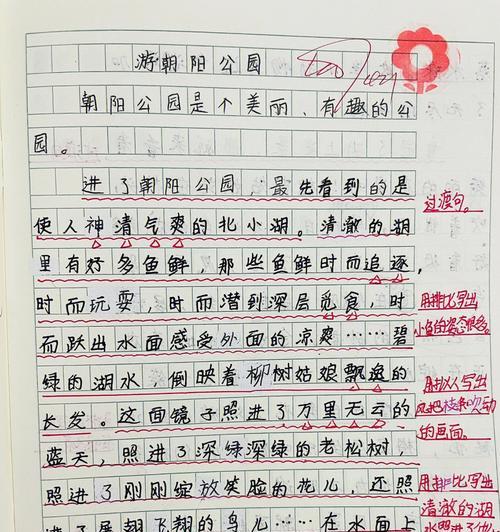 游朝阳公园
朝阳公园是个美丽、有趣的公
园。
进了朝阳公园,最先看到的是
使人神清气爽的北小湖。清澈的湖
里有好多鱼鲜,那些鱼鲜时而追逐,
时而玩耍,时而潜到深层觅食,时
而跃出水面感受外面的凉爽……碧
绿的湖水 倒映着柳树姑娘飘逸的
长发。这面镜子照进了万里无云的
蓝天,照进了深绿深绿的老松树,
照进了刚刚绽放笑脸的花儿,还照
进了展翅飞翔的鸟儿……在水面上
过渡句。
用排比写出
小鱼的姿态很多。
用拟人写出
的画面。
用排比写出
清澈的湖